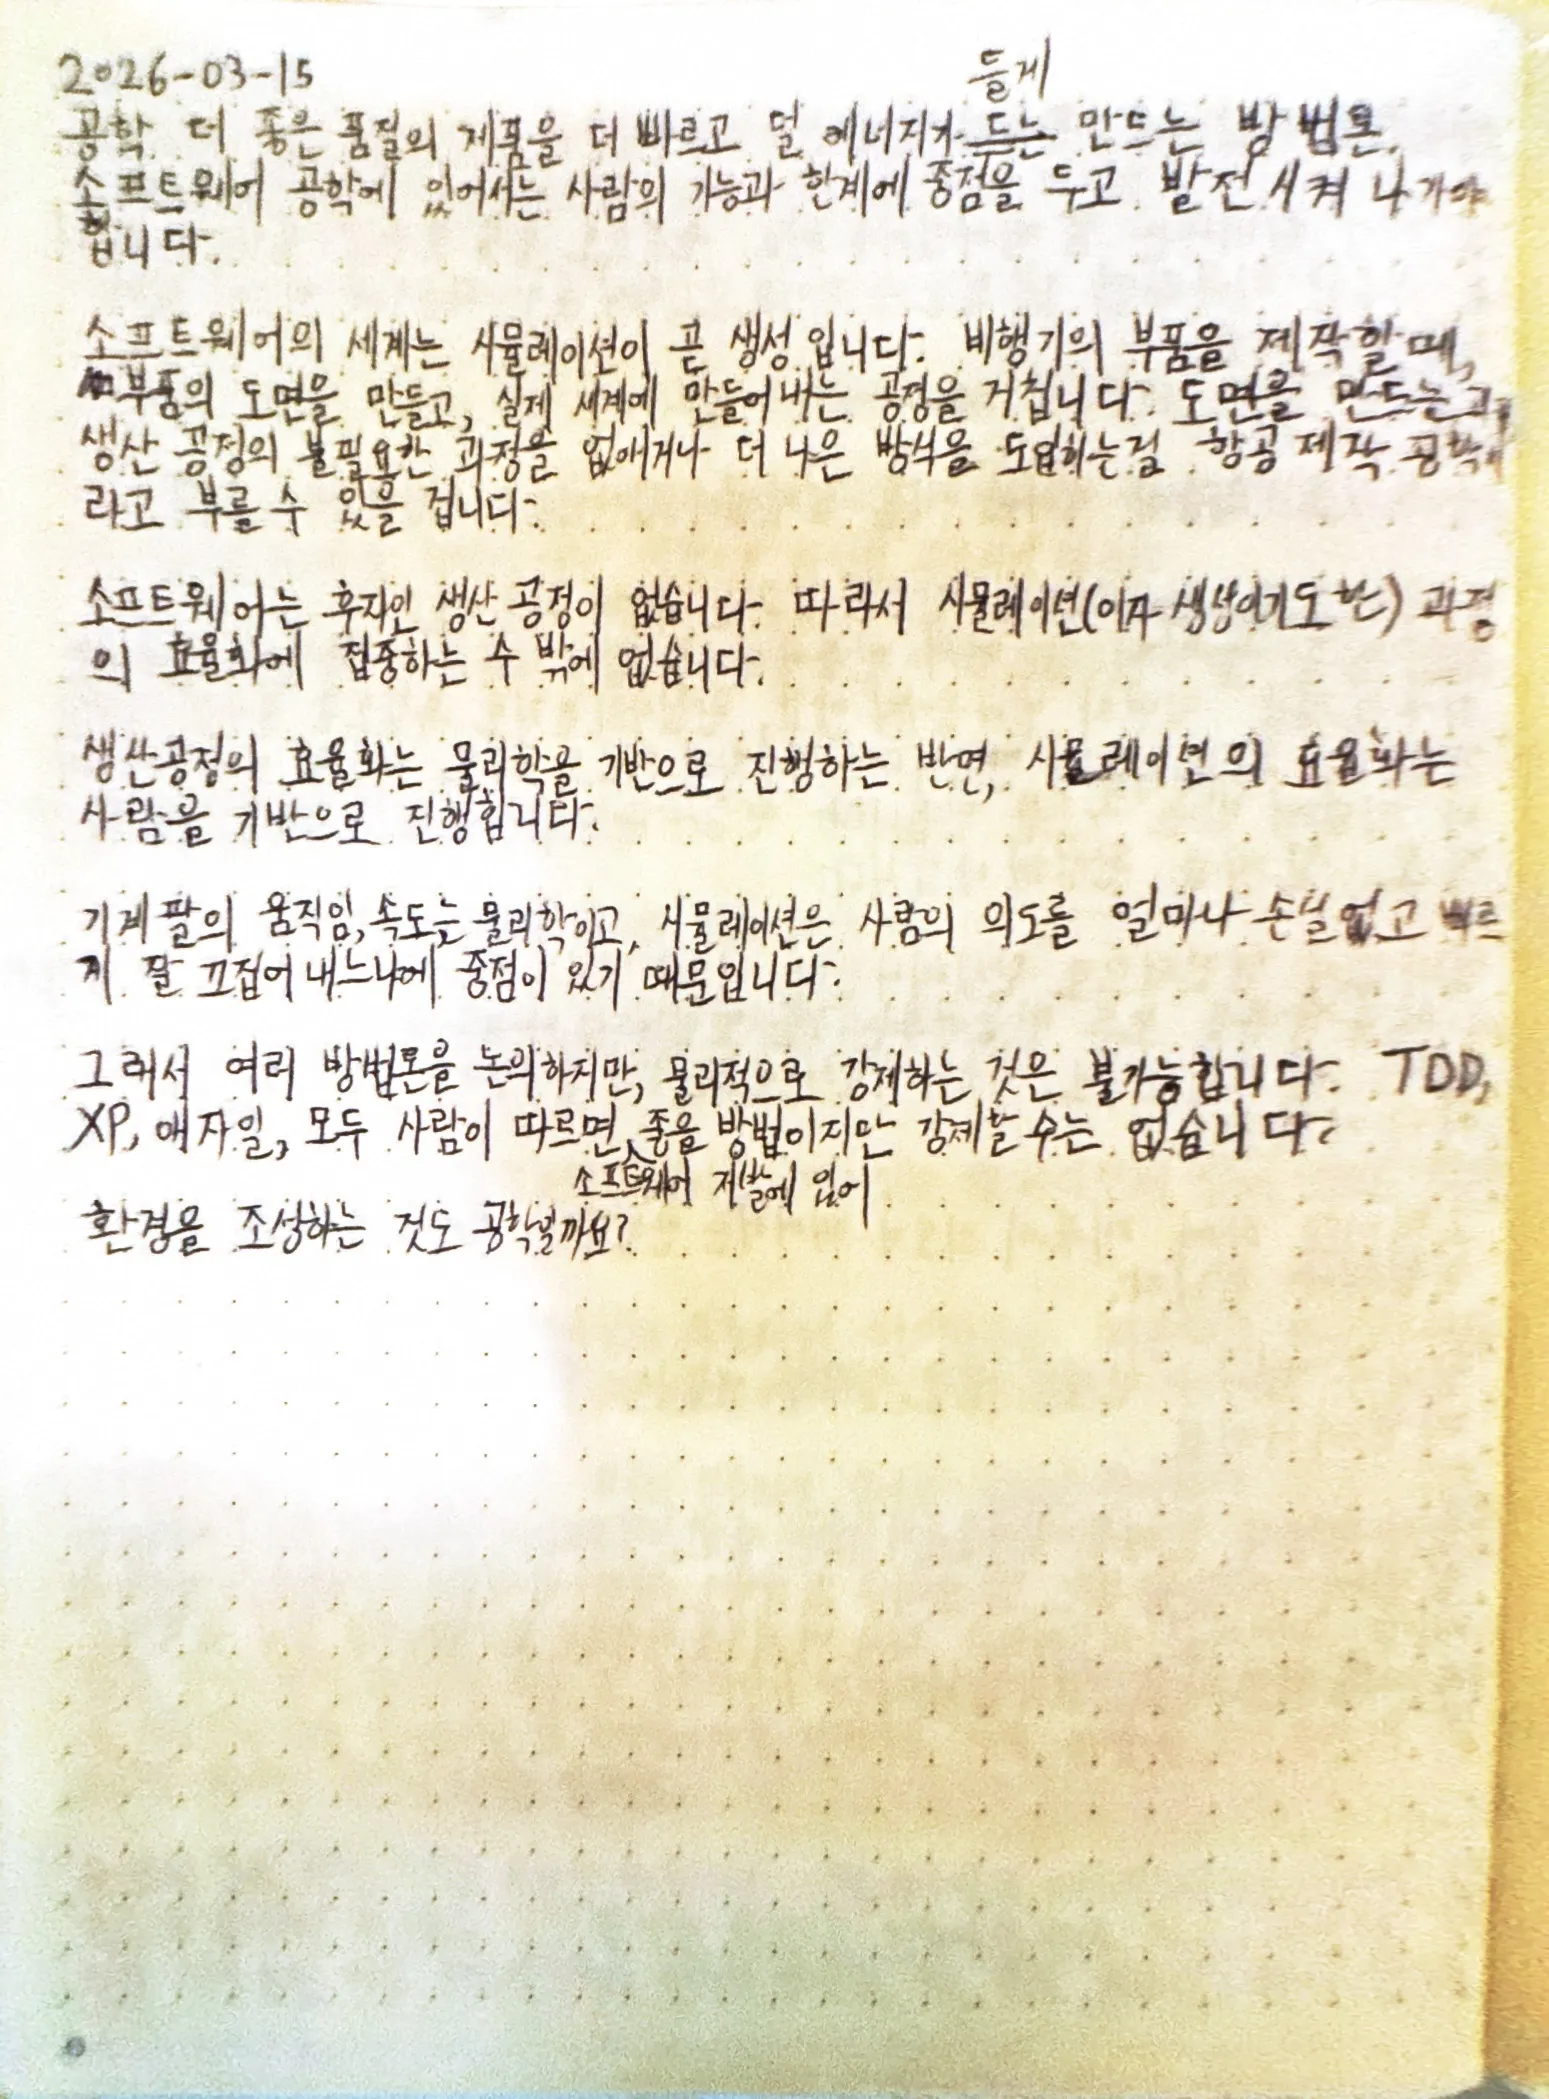 2026-03-15
들게
공학 더 좋은 품질의 제품을 더 빠르고 덜 에너지가 드는 만드는 방법론.
소프트웨어 공학에 있어서는 사람의 가능과 한계에 중점을 두고 발전시켜 나가야
합니다.
소프트웨어의 세계는 시뮬레이션이 곧 생성입니다. 비행기의 부품을 제작할 때,
부품의 도면을 만들고, 실제 세계에 만들어내는 공정을 거칩니다. 도면을 만드는
생산 공정의 불필요한 과정을 없애거나 더 나은 방식을 도입하는걸 항공 제작 공학이
라고 부를 수 있을 겁니다.
소프트웨어는 후자인 생산 공정이 없습니다. 따라서 시뮬레이션(이자 생성이기도 한) 과정
의 효율화에 집중하는 수 밖에 없습니다.
생산공정의 효율화는 물리학을 기반으로 진행하는 반면, 시뮬레이션의 효율화는
사람을 기반으로 진행합니다.
기계 팔의 움직임, 속도는 물리학이고, 시뮬레이션은 사람의 의도를 얼마나 손실없고 빠르
게 잘 끄집어 내느냐에 중점이 있기 때문입니다.
그래서 여러 방법론을 논의하지만, 물리적으로 강제하는 것은 불가능합니다. TDD,
XP, 애자일, 모두 사람이 따르면 좋을 방법이지만 강제할 수는 없습니다.
소프트웨어 개발에 있어
환경을 조성하는 것도 공학일까요?